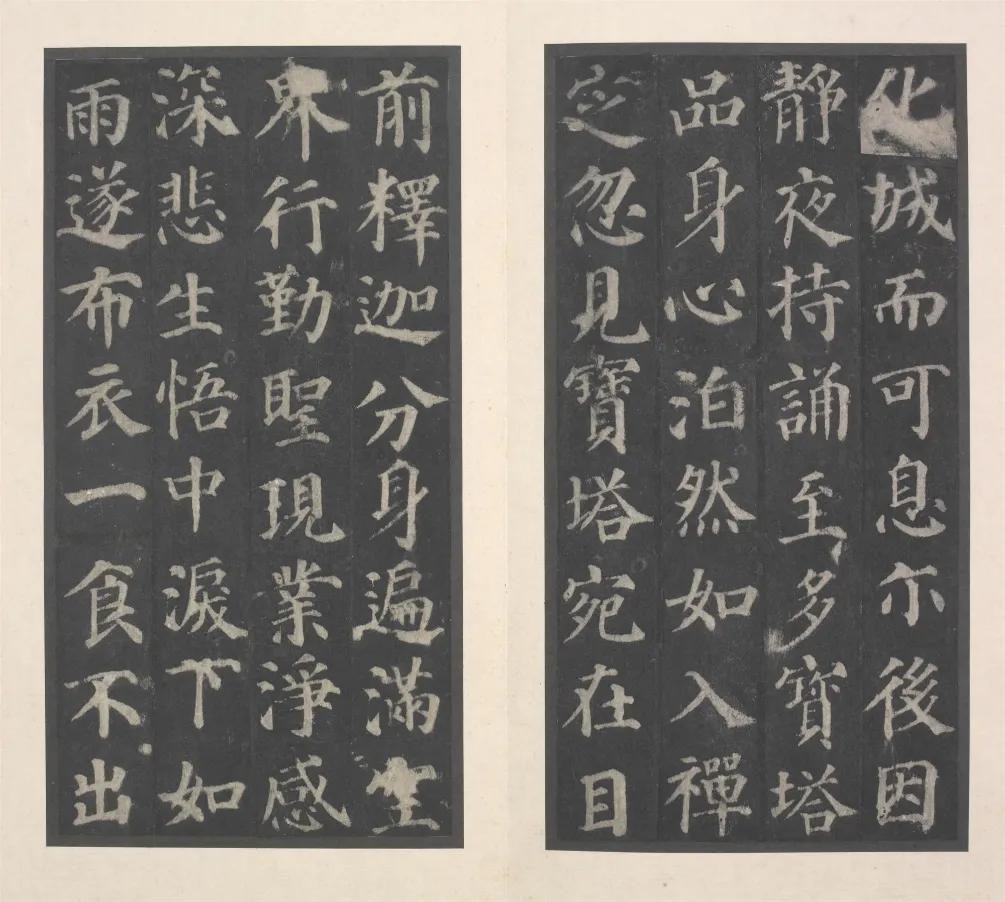 化城而可息尒後因
靜夜持誦至多寶塔
品身心泊然如入禪
定忽見寶塔宛在目
前釋迦分身遍滿空
界行勤聖現業淨感
深悲生悟中淚下如
雨遂布衣一食不出